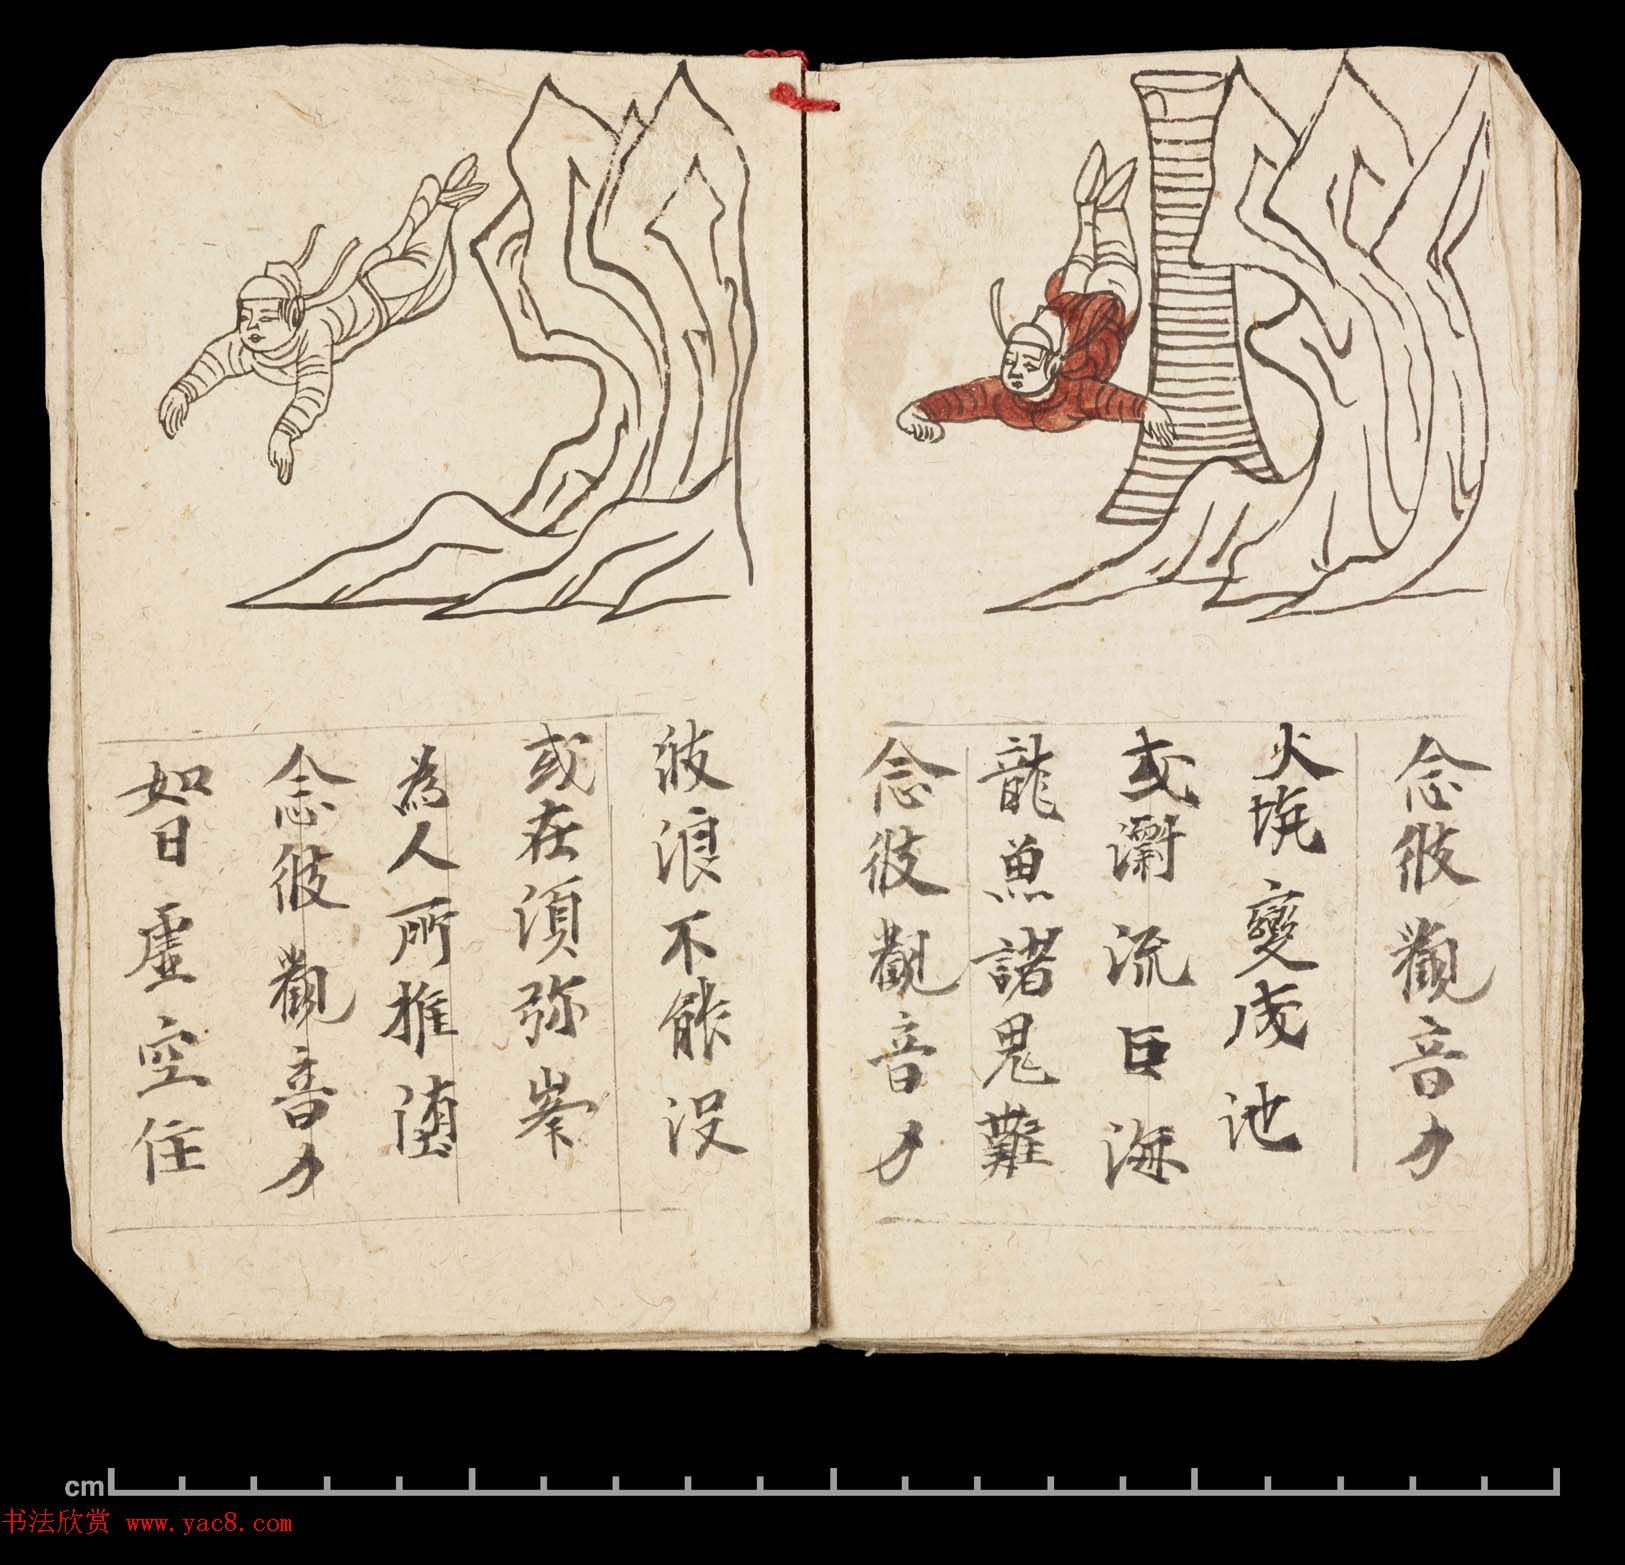 念彼觀音力
火坑變成池
或漂流巨海
龍魚諸鬼難
念彼觀音力
波浪不能没
或在須弥峯
為人所推堕
念彼觀音力
如日虛空住
cm
书法欣赏 www.yac8.com